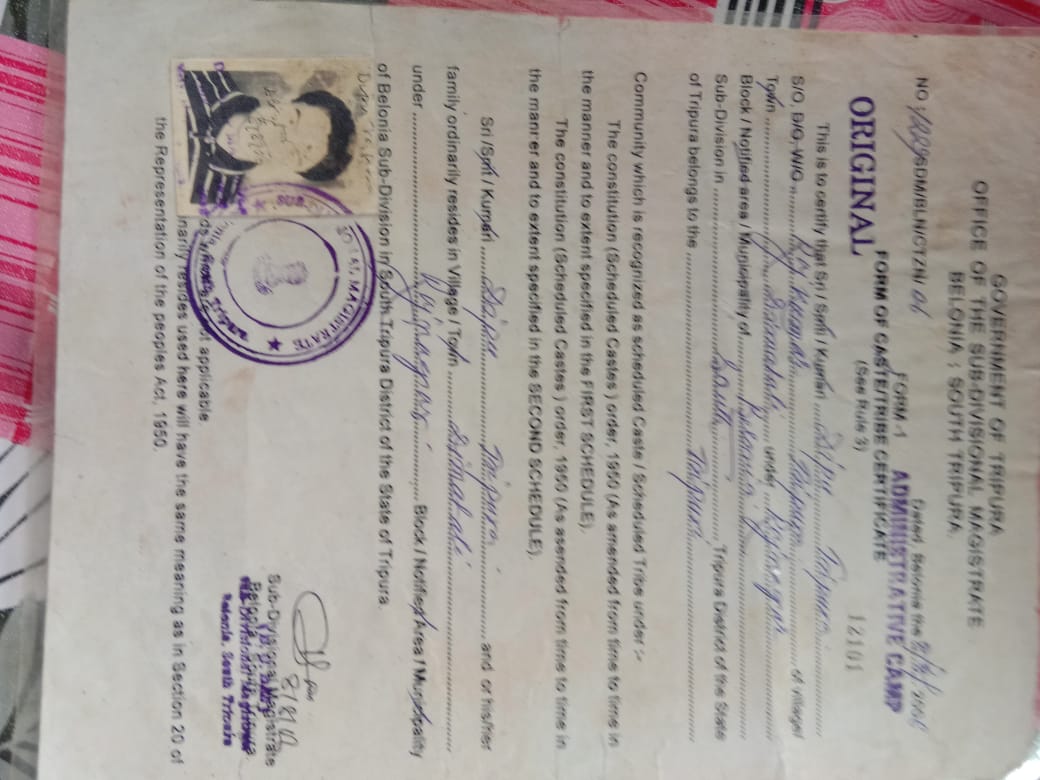 GOVERNMENT OF TRIPURA
OFFICE OF THE SUB-DIVISIONAL MAGISTRATE
BELONIA : SOUTH TRIPURA.
NO :/1229/SDM/BLN/CTZN/ 06 Dated, Belonia the 8/8/ 2006
FORM -1 ADMINISTRATIVE CAMP
FORM OF CASTE/TRIBE CERTIFICATE
ORIGINAL (See Rule 3) 12101
This is to certify that Sri / Smti / Kumari Dipu Tripura
S/O, D/O, W/O Raj Kumar Tripura of village/
Town Dimatali under Rajnagar
Block / Notified area / Municipality of Belonia
Sub-Division in South Tripura District of the State
of Tripura belongs to the Tripuri
Community which is recognized as scheduled Caste / Scheduled Tribe under :-
The constitution (Scheduled Castes ) order, 1950 (As amended from time to time in
the manner and to extent specified in the FIRST SCHEDULE).
The constitution (Scheduled Castes ) order, 1950 (As asended from time to time in
the manner and to extent specified in the SECOND SCHEDULE).
Sri /Smt / Kumari Dipu Tripura and or his/her
family ordinarily resides in Village / Town Dimatali
under Rajnagar Block / Notified Area / Municipality
of Belonia Sub-Division in South Tripura District of the State of Tripura.
MAGISTRATE
South Tripura
Sub-Divisional Magistrate
Belonia, South Tripura.
Sub-Divisional Magistrate
Belonia, South Tripura
which are not applicable.
resides used here will have the same meaning as in Section 20 of
the Representation of the peoples Act, 1950.